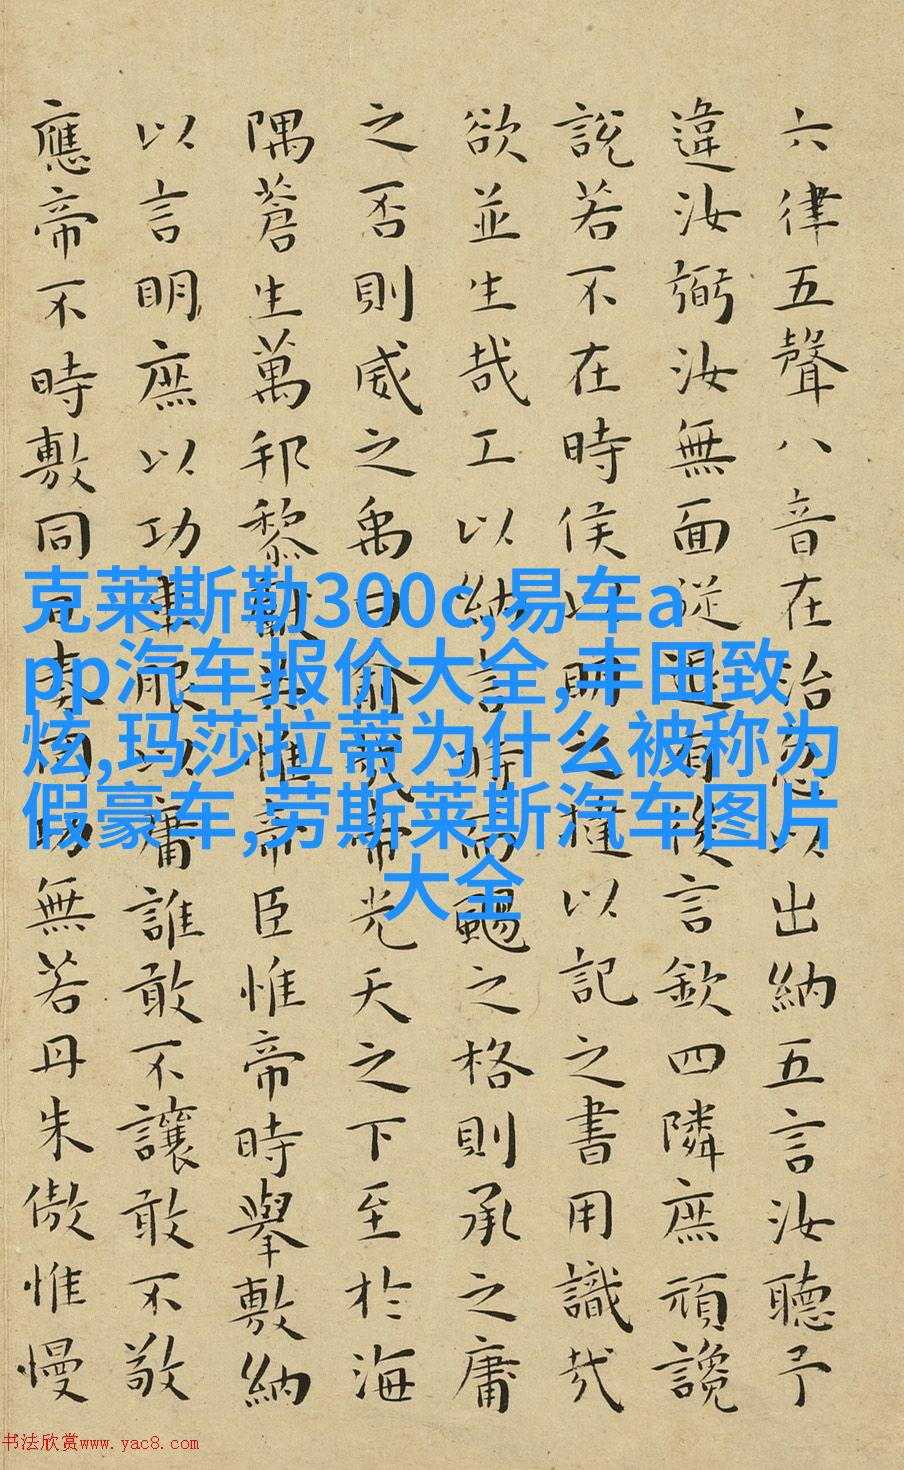 六律五聲八音在治忽以出納五言汝聽予
違汝弼汝無面從退有後言欽四隣庶頑讒
說若不在時侯以明之撻以記之書用識哉
欲並生哉工以納言時而颺之格則承之庸
之否則威之禹曰俞哉帝光天之下至於海
隅蒼生萬邦黎獻共惟帝臣惟帝時舉敷納
以言明庶以功車服以庸誰敢不讓敢不敬
應帝不時敷同日奏罔功無若丹朱傲惟慢
克莱斯勒300c,易车a
pp汽车报价大全,丰田致
炫,玛莎拉蒂为什么被称为
假豪车,劳斯莱斯汽车图片
大全
书法欣赏www.yac8.com